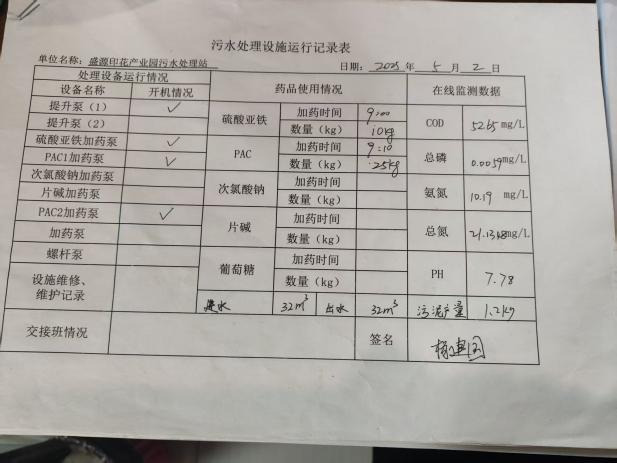 污水处理设施运行记录表
单位名称：盛源印花产业园污水处理站 日期：2025年 5月 2日
处理设备运行情况 药品使用情况 在线监测数据
设备名称 开机情况
提升泵（1） ✓ 硫酸亚铁 加药时间 9:00 COD 52.65 mg/L
提升泵（2） 数量（kg） 10kg
硫酸亚铁加药泵 ✓ PAC 加药时间 9:10 总磷 0.0059 mg/L
PAC1加药泵 ✓ 数量（kg） 25kg
次氯酸钠加药泵 次氯酸钠 加药时间 氨氮 10.19 mg/L
片碱加药泵 数量（kg）
PAC2加药泵 ✓ 片碱 加药时间 总氮 21.1348 mg/L
加药泵 数量（kg）
螺杆泵 葡萄糖 加药时间 PH 7.78
设施维修、 数量（kg）
维护记录 进水 32m³ 出水 32m³ 污泥产量 1.2kg
交接班情况 签名